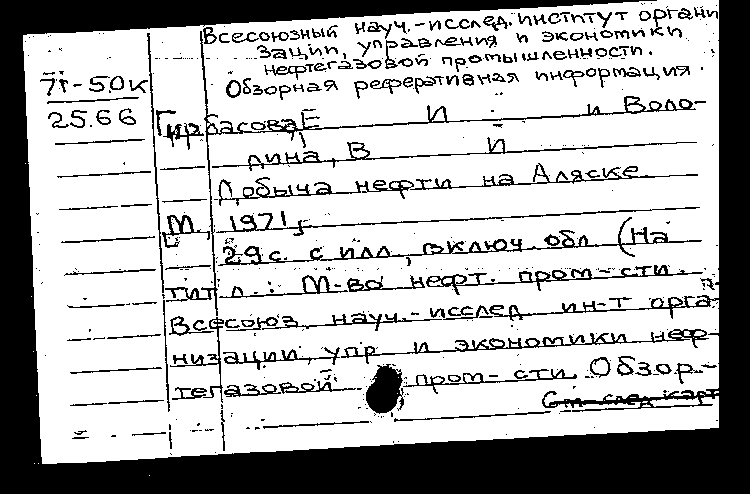 Всесоюзный науч.-исслед. институт органи
зации, управления и экономики
нефтегазовой промышленности.
Обзорная реферативная информация.
7т-50к
25.66
Гирбасова, Е И и Воло-
дина, В И
Добыча нефти на Аляске.
М., 1971,
29 с. с илл, включ. обл (На
тит л.: М-во нефт. пром-сти.
Всесоюз. науч.-исслед ин-т орга-
низации, упр и экономики неф-
тегазовой пром-сти. Обзор.-
См след карт